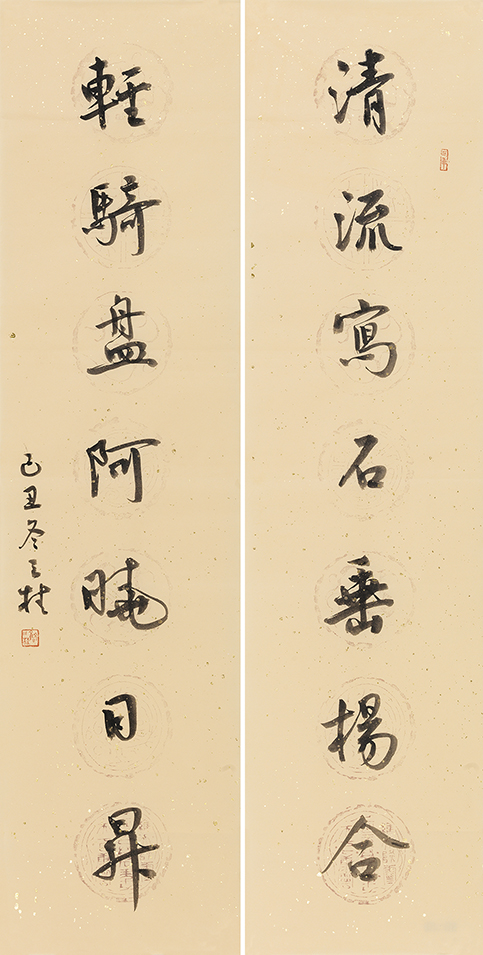 清流寫石垂楊合
輕騎盤阿曉日昇
己丑冬之桂